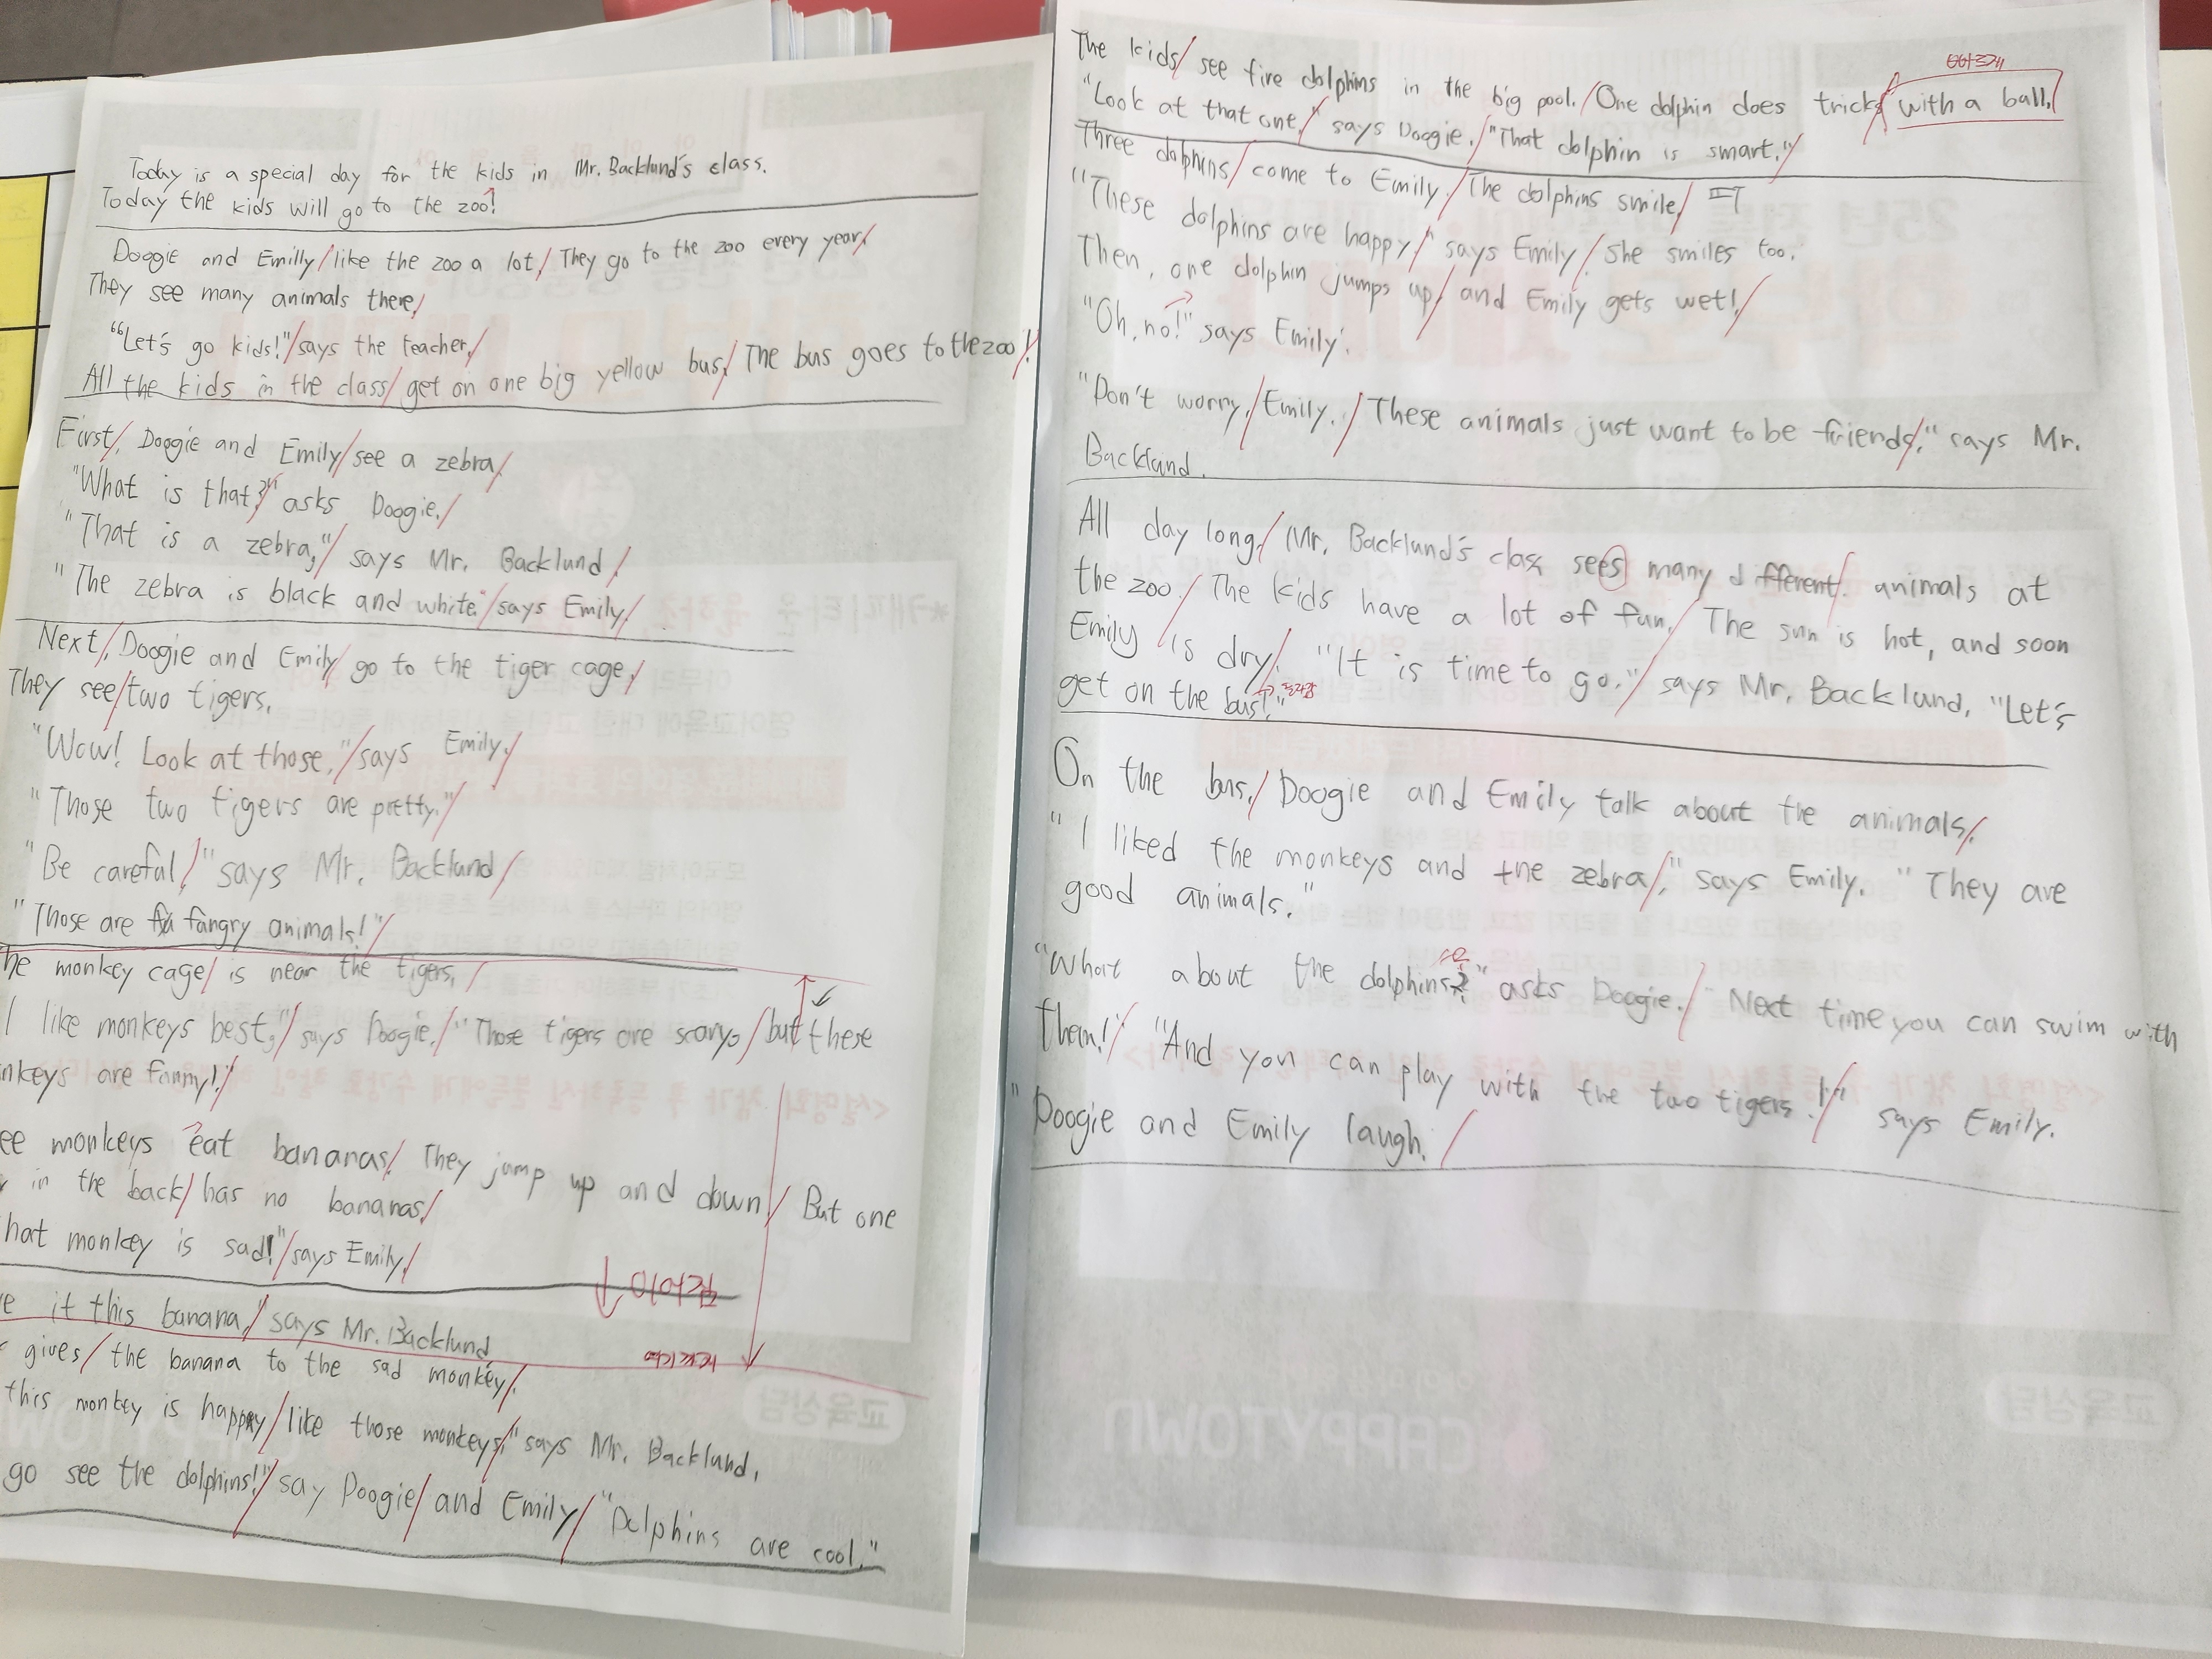 Today is a special day for the kids in Mr. Backlund's class.
Today the kids will go to the zoo!
Doogie and Emilly/like the zoo a lot./They go to the zoo every year./
They see many animals there./
"Let's go kids!"/says the teacher./
All the kids in the class/get on one big yellow bus./The bus goes to the zoo!/
First,/Doogie and Emily/see a zebra./
"What is that?"/asks Doogie./
"That is a zebra,"/says Mr. Backlund./
"The zebra is black and white."/says Emily./
Next,/Doogie and Emily/go to the tiger cage./
They see/two tigers.
"Wow! Look at those,"/says Emily./
"Those two tigers are pretty."/
"Be careful!/"says Mr. Backlund/
"Those are fangry animals!"/
he monkey cage/is near the tigers./
I like monkeys best,"/says Doogie./"Those tigers are scary,/but these
nkeys are fanny!"/
ee monkeys eat bananas./They jump up and down/But one
in the back/has no bananas./
hat monkey is sad!"/says Emily./
이어짐
e it this banana,/"says Mr. Backlund
여기까지
gives/the banana to the sad monkey./
this monkey is happy/like those monkeys,"/says Mr. Backlund.
go see the dolphins!"/say Doogie/and Emily/"Dolphins are cool."
The kids/see fire dolphins in the big pool./One dolphin does tricks/with a ball./
"Look at that one,/"says Doogie./"That dolphin is smart."/
Three dolphins/come to Emily./The dolphins smile./
"These dolphins are happy/,"says Emily./She smiles too.
Then, one dolphin jumps up/and Emily gets wet!/
"Oh, no!" says Emily.
"Don't worry,/Emily./These animals just want to be friends/," says Mr.
Backlund.
All day long,/Mr. Backlund's class sees many different/animals at
the zoo./The kids have a lot of fun./The sun is hot, and soon
Emily is dry/. "It is time to go."/says Mr. Backlund, "Let's
get on the bus!"
On the bus,/Doogie and Emily talk about the animals/.
"I liked the monkeys and the zebra/," says Emily. "They are
good animals."
"What about the dolphins?" asks Doogie./"Next time you can swim with
them!"/ "And you can play with the two tigers!"/ says Emily.
"Doogie and Emily laugh./
CAPPYTOWN
교육상담
교육상담